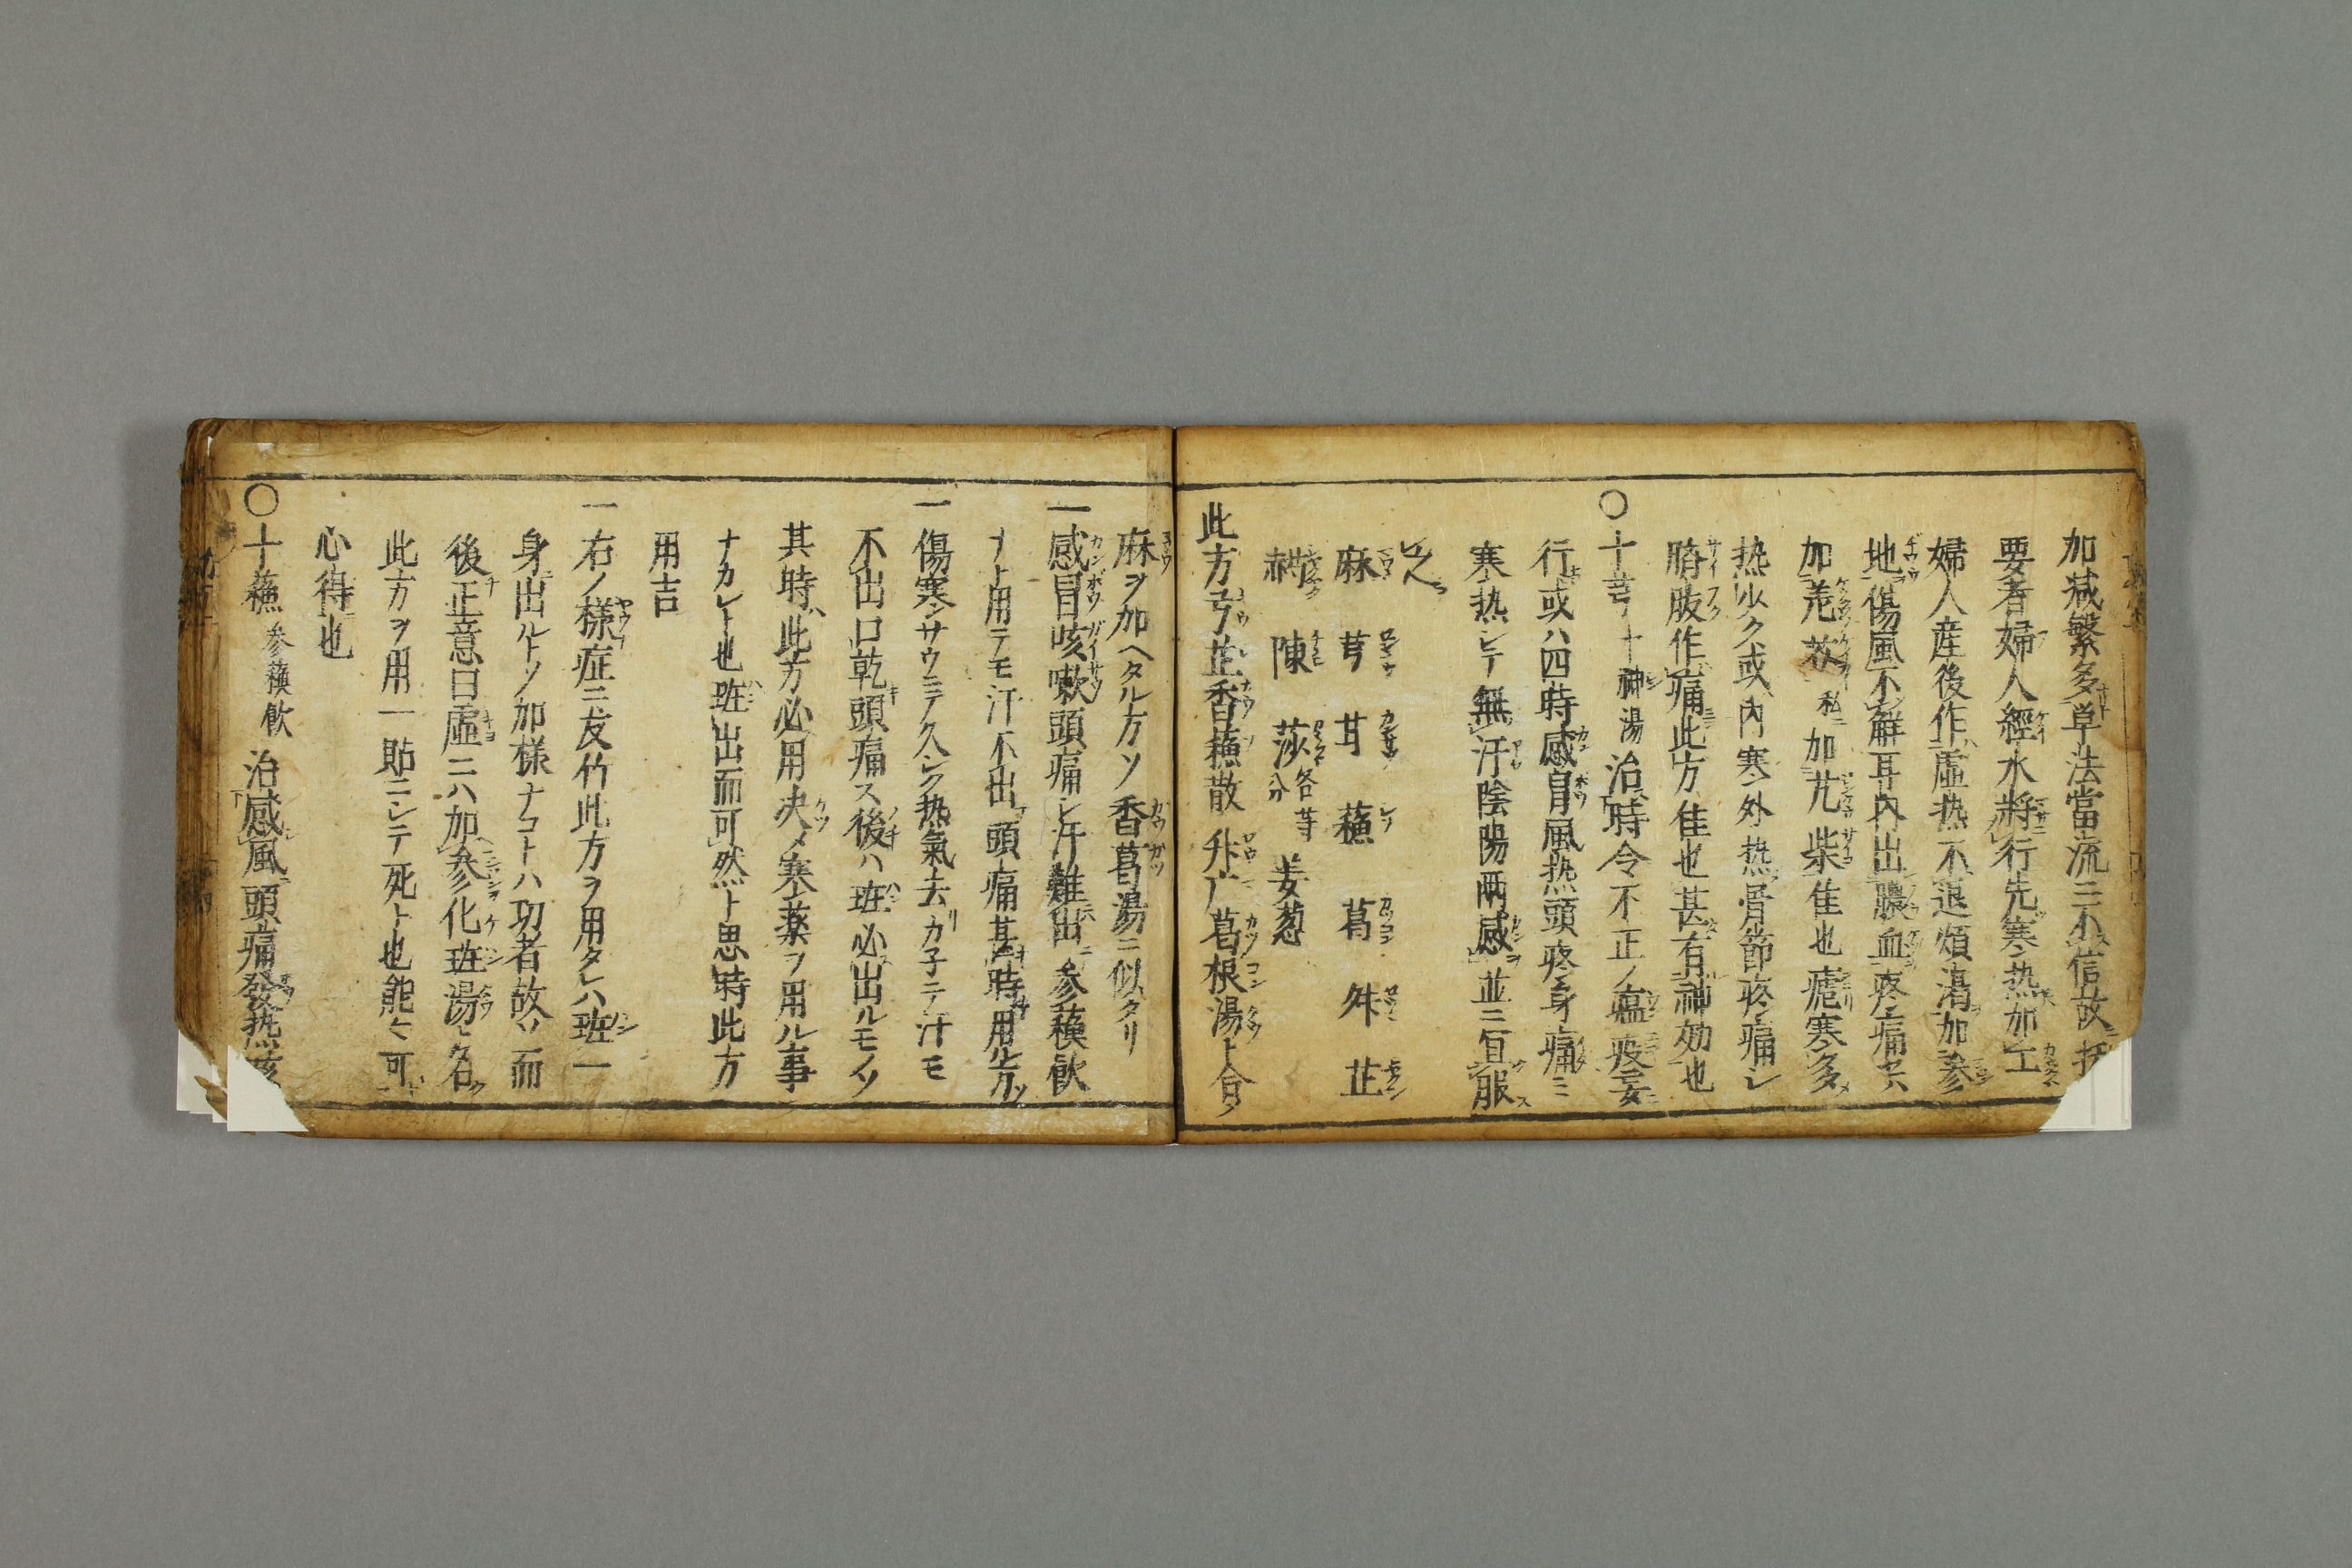 加減繁多草法當流ニ不信故
要者婦人經水將行先寒热加
婦人産後作虛热不退煩渴加參
地傷風不解耳內出膿血疼痛セハ
加羌 私ニ加芃柴佳也瘧寒多
热少ク或內寒外热骨節疼痛シ
脇腹作痛此方佳也甚有神効也
〇十芎十神湯治時令不正ノ瘟疫妄
行或ハ四時感冒風热頭疼身痛ミ
寒热シテ無汗陰陽兩感並ニ宜服
之
麻 芎 甘 蘓 葛 舛 芷
陳 莎各等分 姜葱
此方芎芷香蘓散升广葛根湯ト合メ
麻ヲ加ヘタル方ソ香葛湯ニ似タリ
一感冒咳嗽頭痛シ汗難出參蘓飲
ナト用テモ汗不出頭痛甚時用
一傷寒サウニテ久シク热氣去カ子テ汗モ
不出口乾頭痛ス後ハ班必出ルモノソ
其時此方必用决メ寒薬ヲ用ル事
ナカレト也班出而可然ト思時此方
用吉
一右ノ樣症ニ友竹此方ヲ用タレハ班一
身出ルトソ加樣ナコトハ功者故ソ而
後正意曰虛ニハ加參化班湯ト名
此方ヲ用一貼ニシテ死ト也能々可
心得也
〇十蘓 參蘓飲 治感風頭痛發热咳